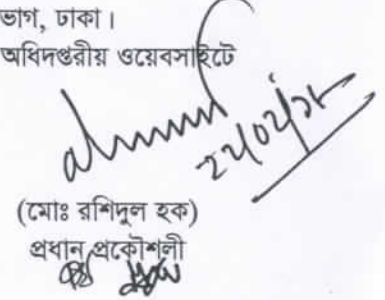 ভাগ, ঢাকা।
অধিদপ্তরীয় ওয়েবসাইটে
(মোঃ রশিদুল হক)
প্রধান প্রকৌশলী